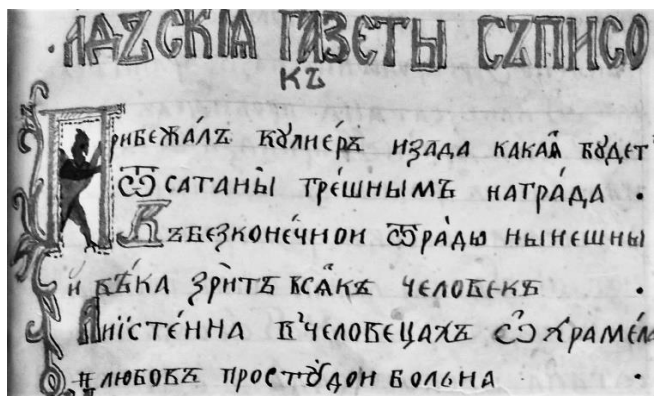 .АДЪСКІѦ ГАЗЕТЫ СЪПИСО
КЪ
Прибежа́лъ кꙋлие́ръ изада какаѧ̑ бꙋдет
ѿ сатаны̀ гре́шнымъ награ́да .
Въ безконе́чнои ѿра́ды нынешны
й вѣ́ка зри̑тъ всѧ̑къ человекъ .
А иїсте́нна в человецахъ ѡ҆храме́ла
ꙗ любовъ простꙋ́дои больна .